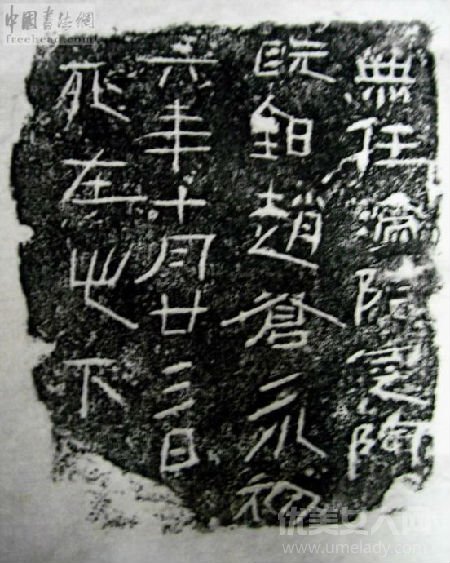 中國書法網
freehead.com
無任濟陰定陶
髡鉗趙倉永初
六年十月廿三日
死在此下
优美女人网
www.umelady.com